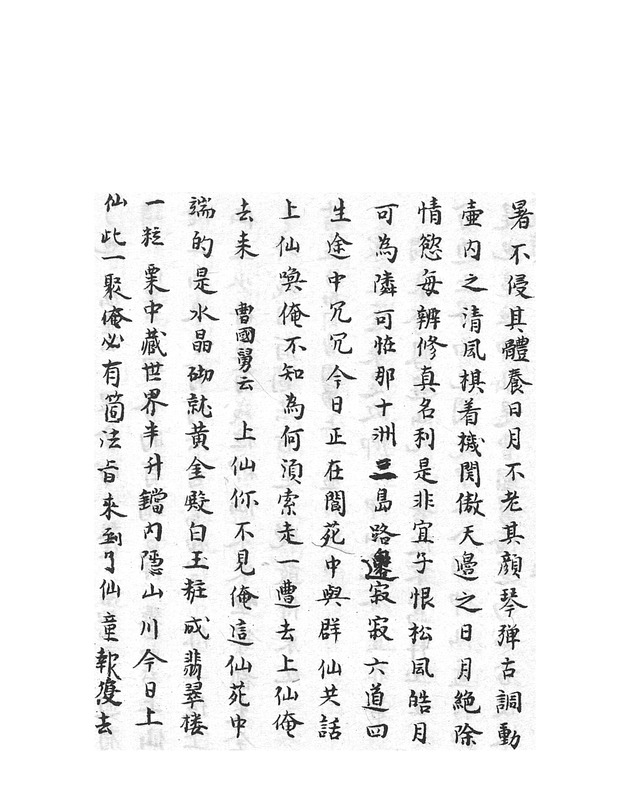 暑不侵其體養日月不老其顏琴彈古調動
壷内之清風棋着機関傲天邉之日月絶除
情慾毎辨修真名利是非宜乎恨松風皓月
可為隣可恠那十洲三島路遥寂寂六道四
生途中冗冗今日正在閬苑中與群仙共話
上仙喚俺不知為何須索走一遭去上仙俺
去来 曹國舅云 上仙你不見俺這仙苑中
端的是水晶砌就黄金殿白玉粧成翡翠楼
一粒粟中藏世界半升鐺内隱山川今日上
仙此一聚俺必有箇法旨來到了仙童報復去